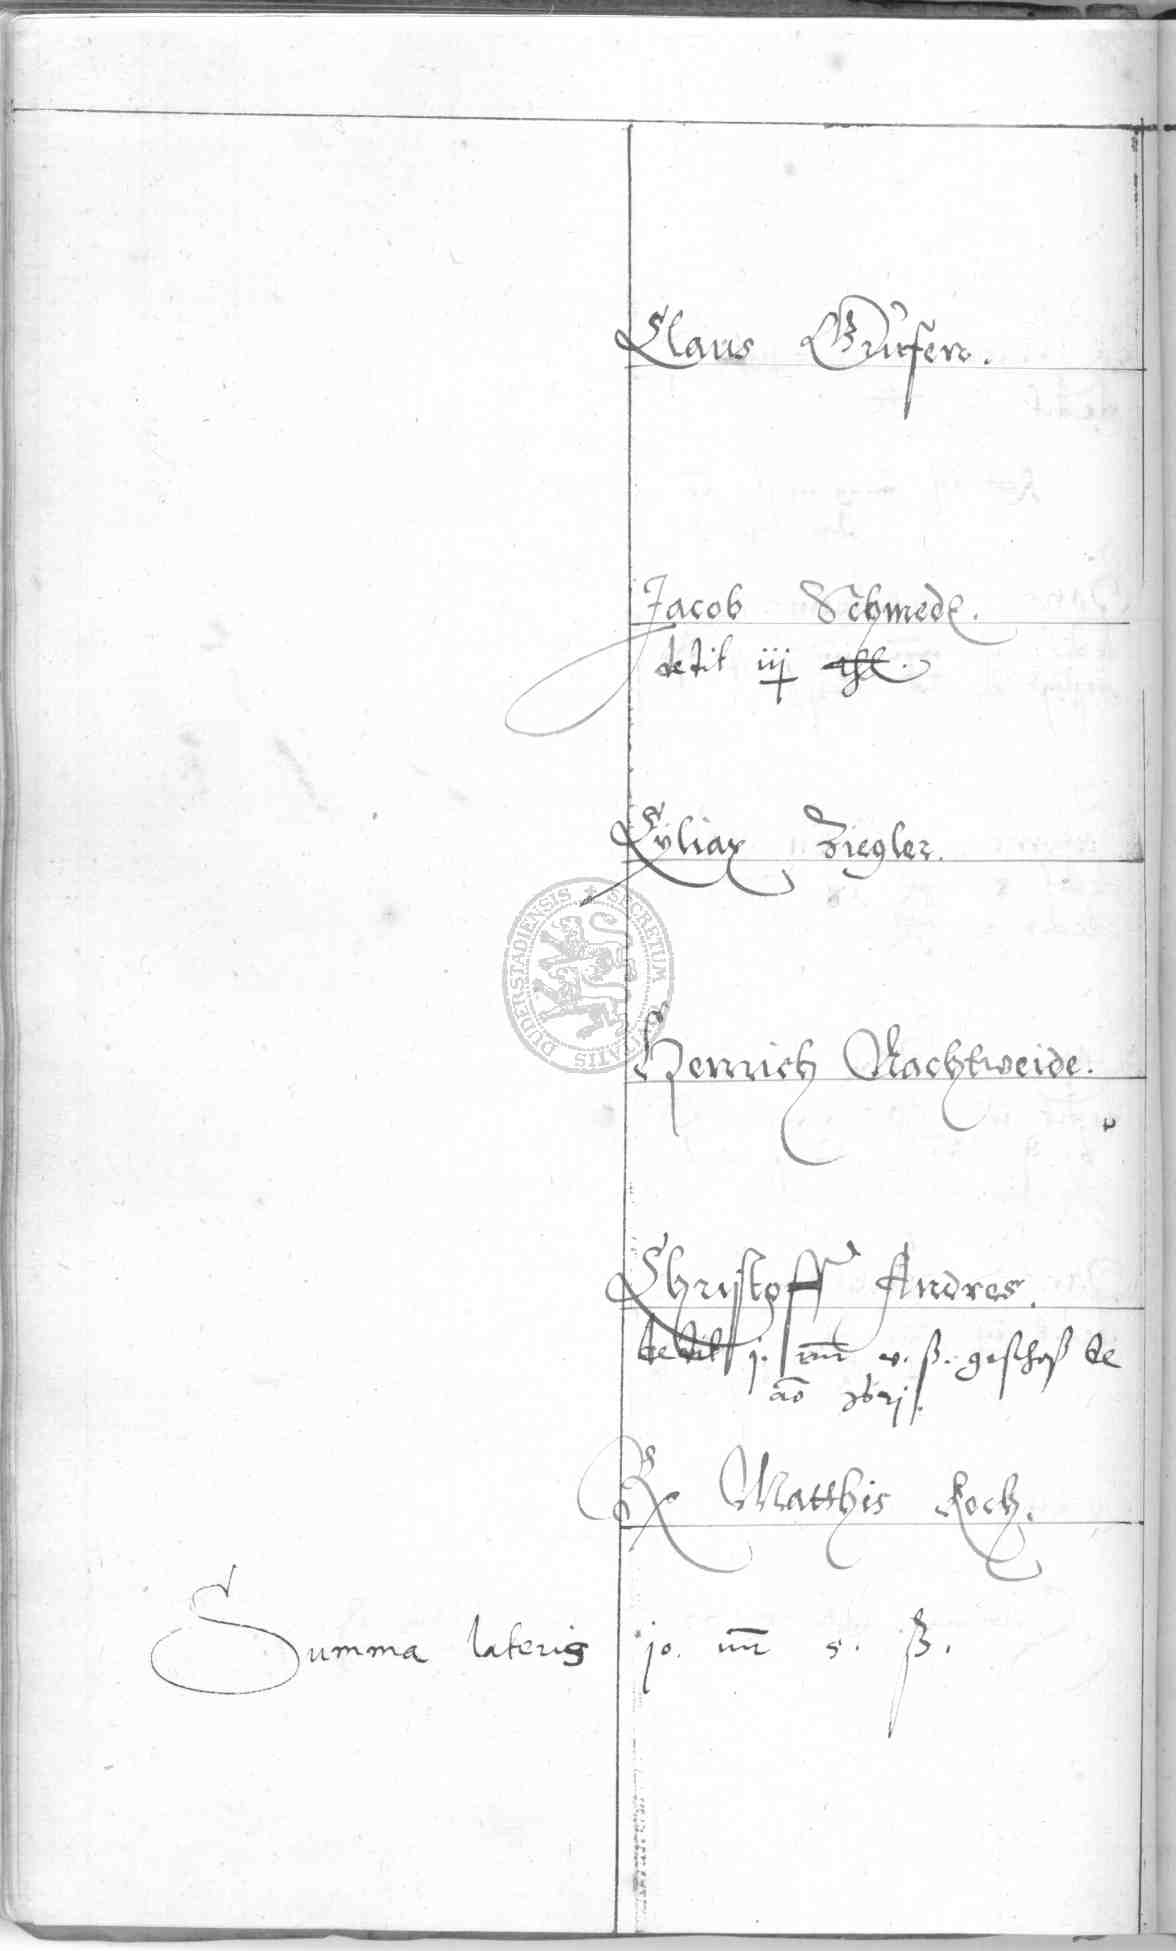 Claus
Jacob Schmede.
dedit iij thl.
Cyliax Ziegler.
SECRETUM CIVITATIS DUDERSTADIENSIS
Henrich Nachtweide.
Christoff Andres.
dedit j. mr v. ß. geschoß de
ao
Matthis Koch.
Summa lateris jo. mr 5. ß.